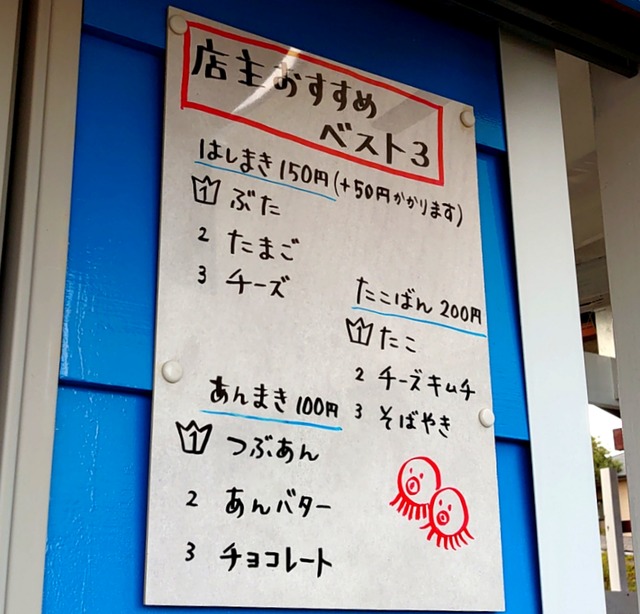 店主おすすめ
ベスト3
はしまき 150円(+50円かかります)
1 ぶた
2 たまご
3 チーズ
たこばん 200円
1 たこ
2 チーズキムチ
3 そばやき
あんまき 100円
1 つぶあん
2 あんバター
3 チョコレート